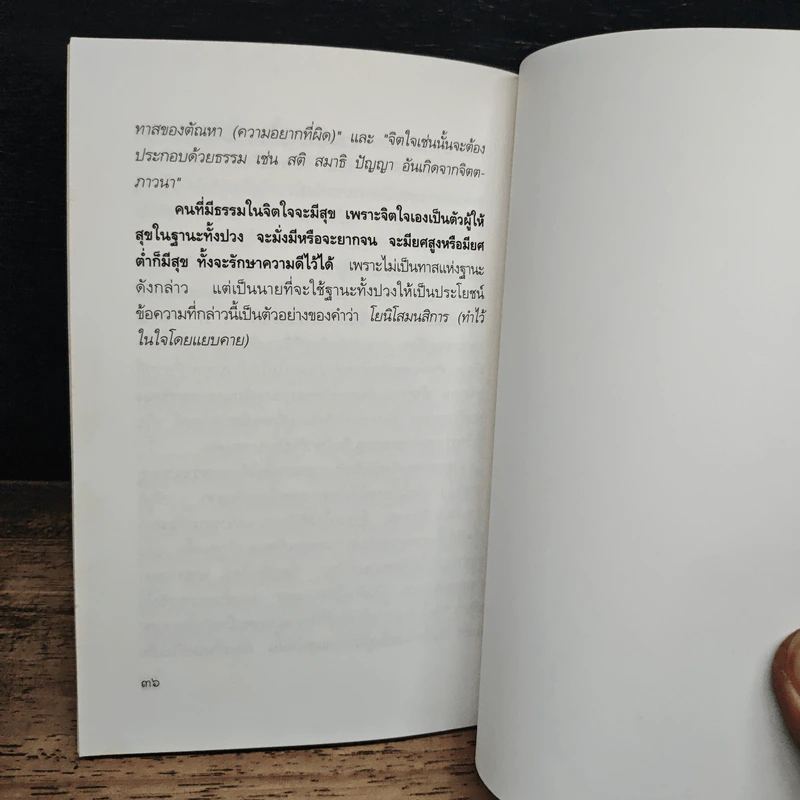 ทาสของตัณหา (ความอยากที่ผิด)" และ "จิตใจเช่นนั้นจะต้อง
ประกอบด้วยธรรม เช่น สติ สมาธิ ปัญญา อันเกิดจากจิตต-
ภาวนา"
คนที่มีธรรมในจิตใจจะมีสุข เพราะจิตใจเองเป็นตัวผู้ให้
สุขในฐานะทั้งปวง จะมั่งมีหรือจะยากจน จะมียศสูงหรือมียศ
ต่ำก็มีสุข ทั้งจะรักษาความดีไว้ได้ เพราะไม่เป็นทาสแห่งฐานะ
ดังกล่าว แต่เป็นนายที่จะใช้ฐานะทั้งปวงให้เป็นประโยชน์
ข้อความที่กล่าวนี้เป็นตัวอย่างของคำว่า โยนิโสมนสิการ (ทำไว้
ในใจโดยแยบคาย)
๓๖